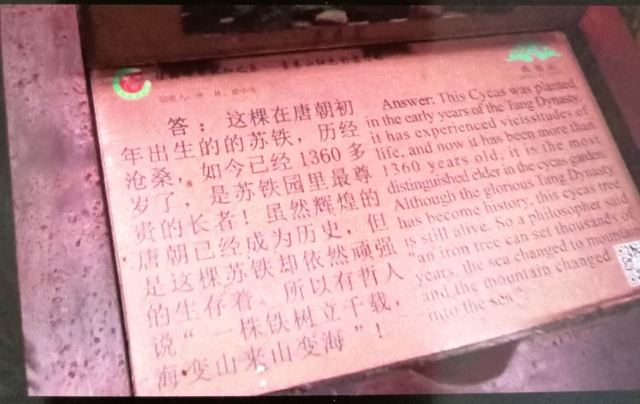 答： 这棵在唐朝初
年出生的的苏铁，历经
沧桑，如今已经 1360 多
岁了，是苏铁园里最尊
贵的长者！虽然辉煌的
唐朝已经成为历史，但
是这棵苏铁却依然顽强
的生存着。所以有哲人
说“一株铁树立千载，
海变山来山变海”！
Answer: This Cycas was planted
in the early years of the Tang Dynasty,
it has experienced vicissitudes of
life, and now it has been more than
1360 years old; it is the most
distinguished elder in the cycas garden.
Although the glorious Tang Dynasty
has become history, this cycas tree
is still alive. So a philosopher said
"an iron tree can set thousands of
years, the sea changed to mountain
and the mountain changed
into the sea"